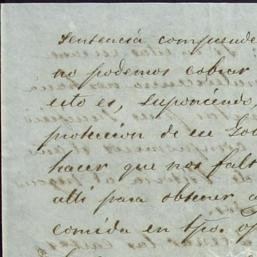 sentencia comprende
no podemos cobrar
esto es, suponiendo,
proteccion de su Gob
hacer que nos falt
alli para obtener a
comida en tpo. op